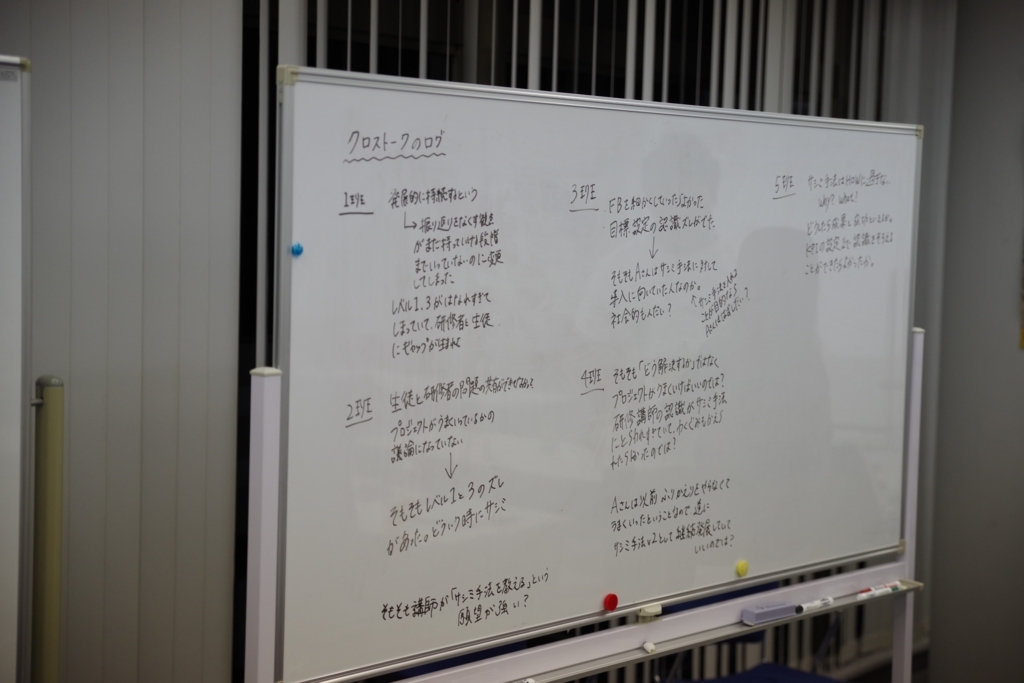 クロストークのログ
1班
発展的に持続するという
↳振り返りをなくす
がまだ持っていける段階
までいっていないのに変更
してしまった
レベル1.3がはなれすぎて
しまっていて、研修者と生徒
にギャップが生まれた
2班
生徒と研修者の問題の共有ができてなくて
プロジェクトがうまくいっているかの
議論になっていない
↓
そもそもレベル1と3のズレ
があった。どういう時にサシミ
そもそも講師が「サシミ手法を教える」という
願望が強い?
3班
FBを細かくしていったらよかった
目標設定の認識ズレがでた
↓
そもそもAさんはサシミ手法に対して
導入に向いていた人なのか。
社会的もんだい?
4班
そもそも「どう解決するか」ではなく
プロジェクトがうまくいけばいいのでは?
研修講師の認識がサシミ手法
にとらわれすぎていて、わくぐみをかえら
れたら良かったのでは?
Aさんは以前ふりかえりをやらなくて
うまくいったということなので逆に
サシミ手法v2として継続発展していて
いいのでは?
5班
サシミ手法はHowに過ぎない
Why? What?
どうしたら成果と成功といえるか。
KPIの設定上で認識をそろえる
ことができたらよかったか。